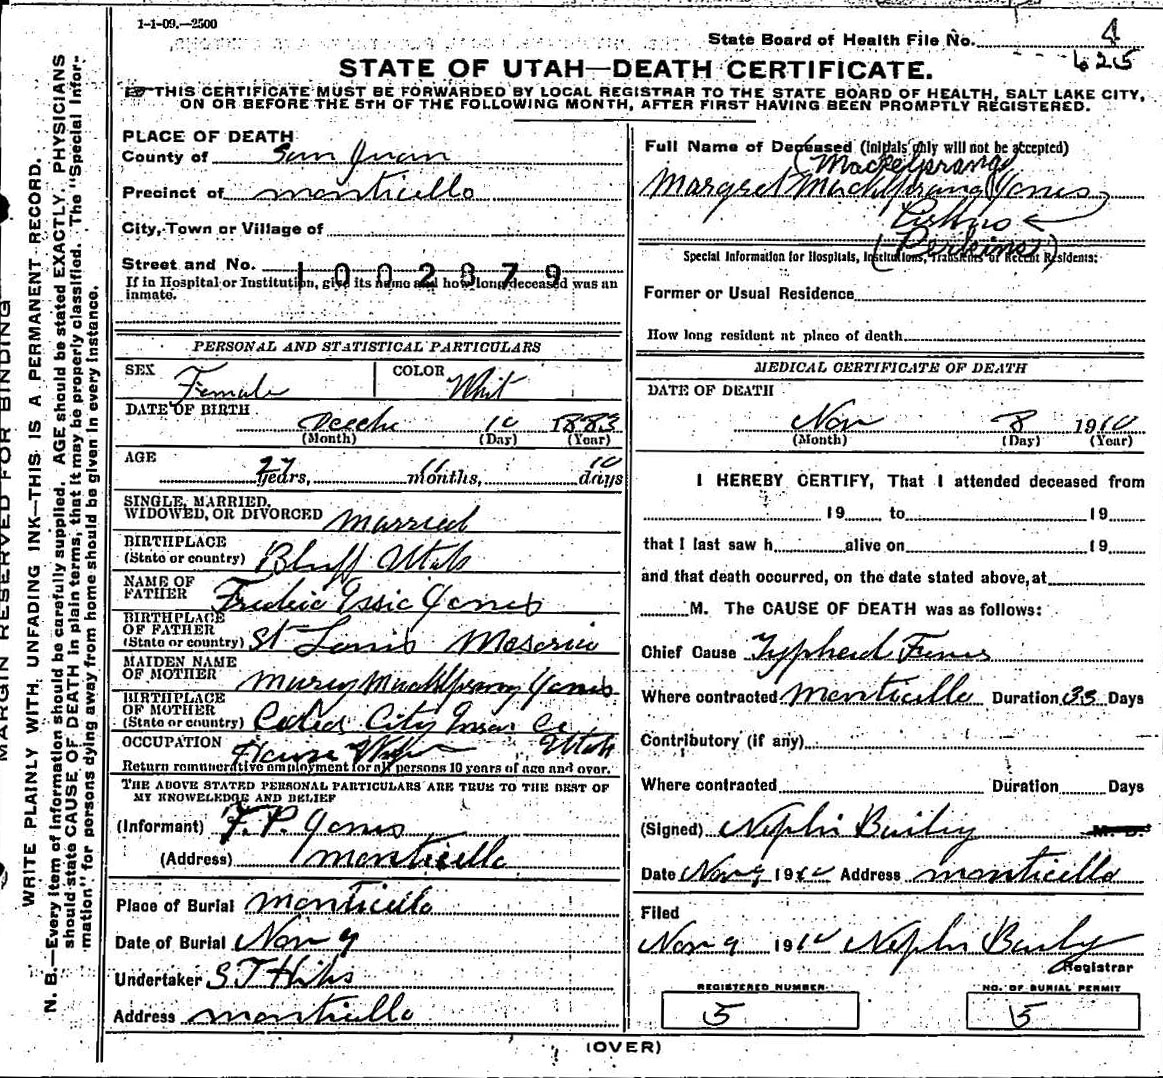 1-1-09.—2500
State Board of Health File No. 4
625
STATE OF UTAH—DEATH CERTIFICATE.
THIS CERTIFICATE MUST BE FORWARDED BY LOCAL REGISTRAR TO THE STATE BOARD OF HEALTH, SALT LAKE CITY,
ON OR BEFORE THE 5TH OF THE FOLLOWING MONTH, AFTER FIRST HAVING BEEN PROMPTLY REGISTERED.
MARGIN RESERVED FOR BINDING
WRITE PLAINLY WITH UNFADING INK—THIS IS A PERMANENT RECORD.
N. B.—Every item of information should be carefully supplied. AGE should be stated EXACTLY. PHYSICIANS
should state CAUSE OF DEATH in plain terms, that it may be properly classified. The "Special Infor-
mation" for persons dying away from home should be given in every instance.
PLACE OF DEATH
County of San Juan
Precinct of Monticello
City, Town or Village of
Street and No.
1002879
If in Hospital or Institution, give its name and how long deceased was an
inmate.
PERSONAL AND STATISTICAL PARTICULARS
SEX Female COLOR Whit
DATE OF BIRTH 10 1883
(Month) (Day) (Year)
AGE 27 years, 11 months, 10 days
SINGLE, MARRIED,
WIDOWED, OR DIVORCED Married
BIRTHPLACE
(State or country) Bluff Utah
NAME OF
FATHER Fredric Jones
BIRTHPLACE
OF FATHER
(State or country) St Louis
MAIDEN NAME
OF MOTHER Mary Jones
BIRTHPLACE
OF MOTHER
(State or country) City Utah
OCCUPATION House
Return remunerative employment for all persons 10 years of age and over.
THE ABOVE STATED PERSONAL PARTICULARS ARE TRUE TO THE BEST OF
MY KNOWLEDGE AND BELIEF
(Informant) F. P. Jones
(Address) Monticello
Place of Burial Monticello
Date of Burial Nov 9
Undertaker S T
Address Monticello
Full Name of Deceased (Initials only will not be accepted)
(Mackelprang)
Margret Jones
(Perkins)
Special Information for Hospitals, Institutions, Transients or Recent Residents:
Former or Usual Residence
How long resident at place of death
MEDICAL CERTIFICATE OF DEATH
DATE OF DEATH
Nov 8 1910
(Month) (Day) (Year)
I HEREBY CERTIFY, That I attended deceased from
19 to 19
that I last saw h alive on 19
and that death occurred, on the date stated above, at
M. The CAUSE OF DEATH was as follows:
Chief Cause
Where contracted Monticello Duration 33 Days
Contributory (if any)
Where contracted Duration Days
(Signed) Nephi Baily M. D.
Date Nov 9 1910 Address Monticello
Filed
Nov 9 1910 Nephi Baily
Registrar
REGISTERED NUMBER
5
NO. OF BURIAL PERMIT
5
(OVER)